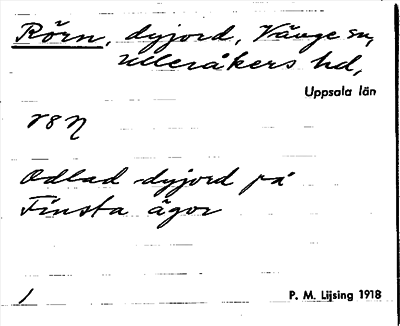 Rörn, dyjord, Vänge sn,
Ulleråkers hd,
Uppsala län
Odlad dyjord på
Finsta ägor
1 P. M. Lijsing 1918